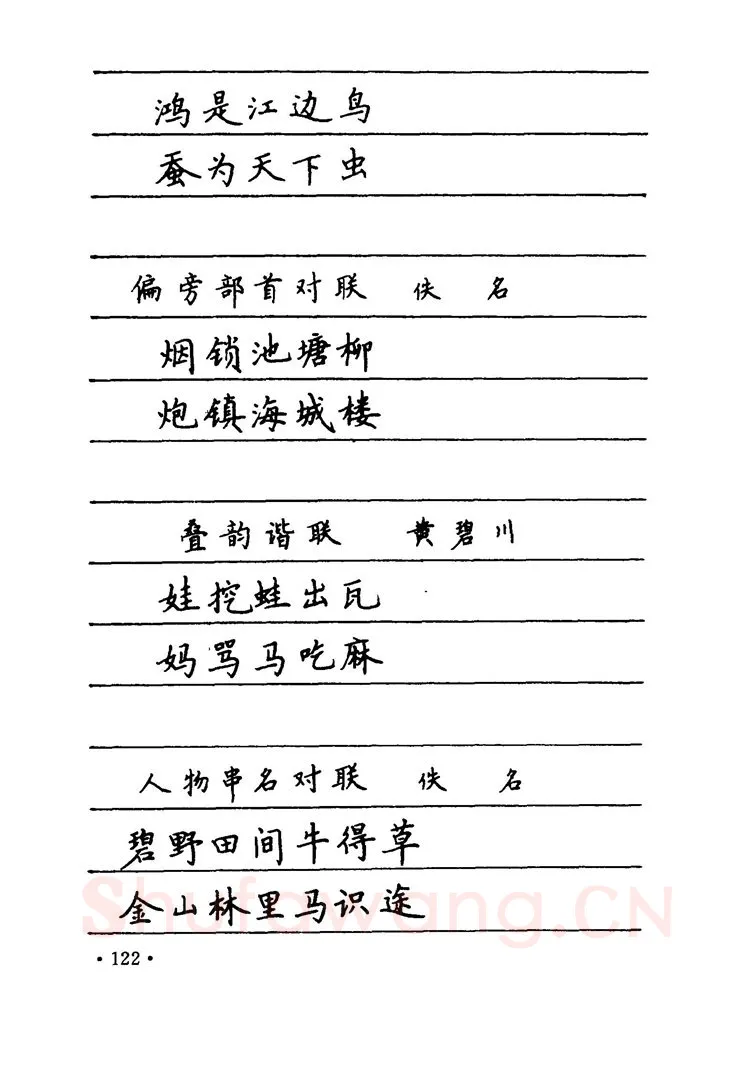 鸿是江边鸟
蚕为天下虫
偏旁部首对联 佚 名
烟锁池塘柳
炮镇海城楼
叠韵谐联 黄碧川
娃挖蛙出瓦
妈骂马吃麻
人物串名对联 佚 名
碧野田间牛得草
金山林里马识途
Shufawang.CN
·122·